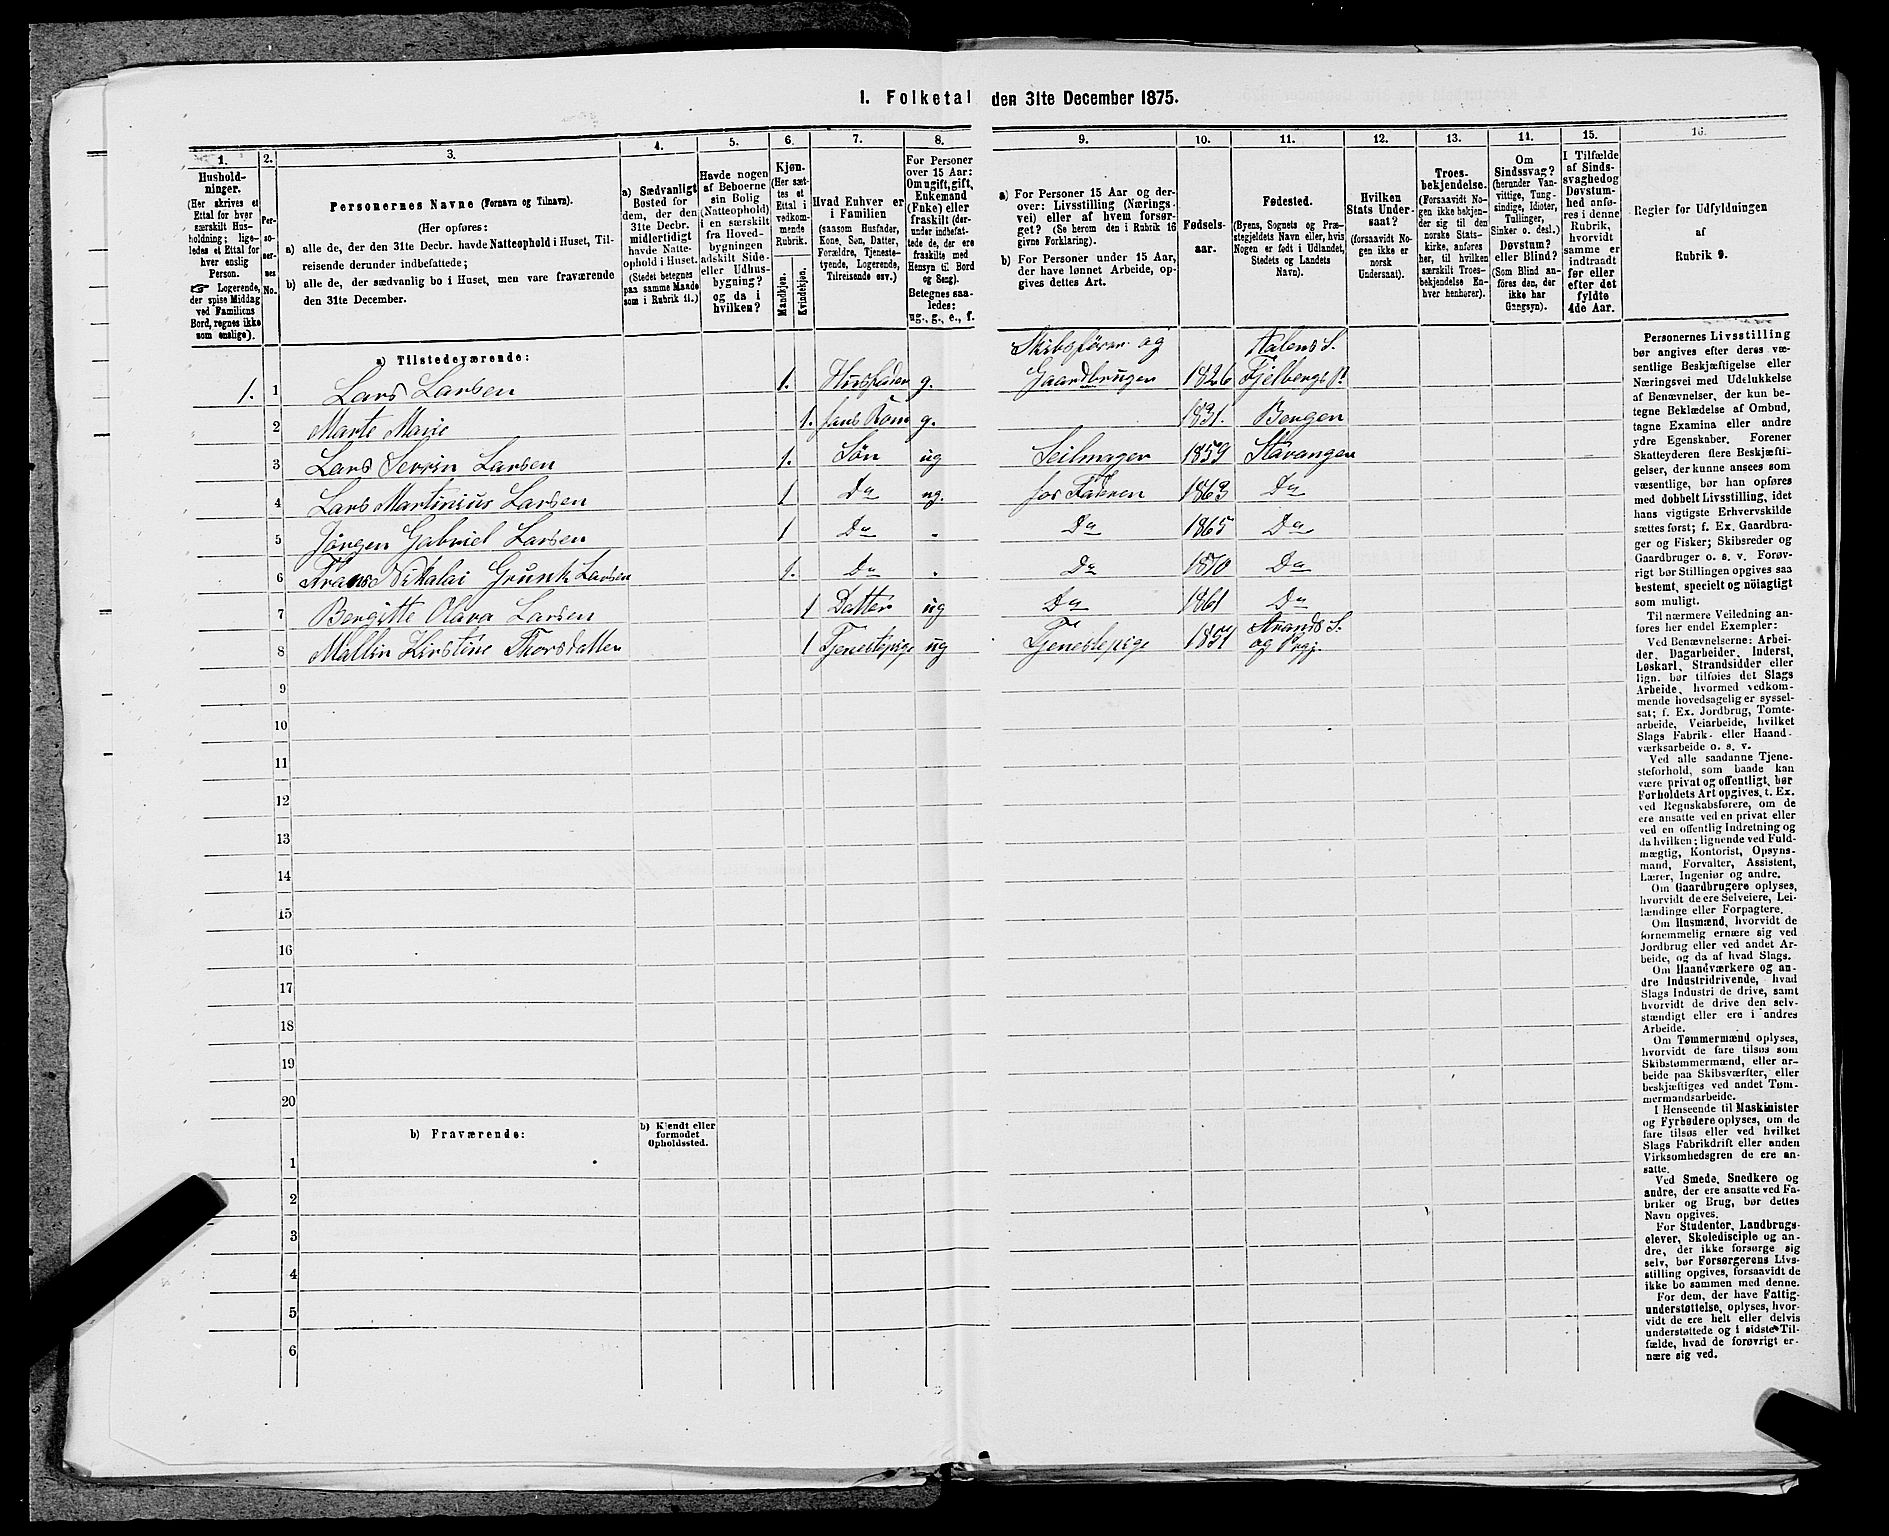 1. Folketal den 31te December 1875.
1.
2.
3.
4.
5.
6.
7.
8.
9.
10.
11.
12.
13.
14.
15.
16.
Hushold-
ninger.
(Her skrives et
Ettal for hver
særskilt Hus-
holdning; lige-
ledes et Ettal for
hver enslig
Person.
☞ Logerende,
der spise Middag
ved Familiens
Bord, regnes ikke
som enslige).
Per-
so-
ner-
nes
No.
Personernes Navne (Fornavn og Tilnavn).
(Her opføres:
a) alle de, der den 31te Decbr. havde Natteophold i Huset, Til-
reisende derunder indbefattede;
b) alle de, der sædvanlig bo i Huset, men vare fraværende
den 31te December.
a) Sædvanligt
Bosted for
dem, der den
31te Decbr.
midlertidigt
havde Natte-
ophold i Huset.
(Stedet betegnes
paa samme Maade
som i Rubrik 11.)
Havde nogen
af Beboerne
sin Bolig
(Natteophold)
i en særskilt
fra Hoved-
bygningen
adskilt Side-
eller Udhus-
bygning?
og da i
hvilken?
Kjøn.
(Her sæt-
tes et
Ettal i
vedkom-
mende
Rubrik.
Mandkjøn.
Kvindekjøn.
Hvad Enhver er
i Familien
(saasom Husfader,
Kone, Søn, Datter,
Forældre, Tjeneste-
tyende, Logerende,
Tilreisende osv.)
For Personer
over 15 Aar:
Om ugift, gift,
Enkemand
(Enke) eller
fraskilt (der-
under indbefat-
tede de, der ere
fraskilte med
Hensyn til Bord
og Seng).
Betegnes saa-
ledes:
ug., g., e., f.
a) For Personer 15 Aar og der-
over: Livsstilling (Nærings-
vei) eller af hvem forsør-
get? (Se herom den i Rubrik 16
givne Forklaring).
b) For Personer under 15 Aar,
der have lønnet Arbeide, op-
gives dettes Art.
Fødsels-
aar.
Fødested.
(Byens, Sognets og Præ-
stegjeldets Navn eller, hvis
Nogen er født i Udlandet,
Stedets og Landets
Navn).
Hvilken
Stats Under-
saat?
(forsaavidt No-
gen ikke er
norsk
Undersaat).
Troes-
bekjendelse.
(Forsaavidt No-
gen ikke bekjen-
der sig til den
norske Stats-
kirke, anføres
her, til hvilken
særskilt Troes-
bekjendelse En-
hver henhører).
Om
Sindssvag?
(herunder Van-
vittige, Tung-
sindige, Idioter,
Tullinger,
Sinker o. desl.)
Døvstum?
eller Blind?
(Som Blind an-
føres den, der
ikke har
Gangsyn).
I Tilfælde
af Sinds-
svaghed og
Døvstum-
hed anfø-
res i denne
Rubrik,
hvorvidt
samme er
indtraadt
før eller
efter det
fyldte
4de Aar.
Regler for Udfyldningen
af
Rubrik 9.
a) Tilstedeværende:
1. 1 Lars Larsen 1. Husfader g. Skibsfører og Gaardbruger 1826 Aalens S. Fjelbergs P.
2 Marte Marie 1. hans Kone g. 1831. Bergen
3 Lars Severin Larsen 1. Søn ug Seilmager 1859 Stavanger
4 Lars Martinius Larsen 1 Do ug. hos Faderen 1863 Do
5 Jørgen Gabriel Larsen 1 Do „ Do 1865 Do
6 Frans Nikolai Grunk Larsen 1. Do „ Do 1870 Do
7 Bergitte Olava Larsen 1 Datter ug Do 1861 Do
8 Mallin Kirstine Thorsdatter 1 Tjenestepige ug Tjenestepige 1857 Strands S. og Prgj.
9
10
11
12
13
14
15
16
17
18
19
20
b) Fraværende:
b) Kjendt eller
formodet
Opholdssted.
1
2
3
4
5
6
Personernes Livsstilling
bør angives efter deres væ-
sentlige Beskjæftigelse eller
Næringsvei med Udelukkelse
af Benævnelser, der kun be-
tegne Beklædelse af Ombud,
tagne Examina eller andre
ydre Egenskaber. Forener
Skatteyderen flere Beskjæfti-
gelser, der kunne ansees som
væsentlige, bør han opføres
med dobbelt Livsstilling, idet
hans vigtigste Erhvervskilde
sættes først; f. Ex. Gaardbru-
ger og Fisker; Skibsreder og
Gaardbruger o. s. v. Forøv-
rigt bør Stillingen opgives saa
bestemt, specielt og nöiagtigt
som muligt.
Til nærmere Veiledning an-
føres her endel Exempler:
Ved Benævnelserne: Arbei-
der, Dagarbeider, Inderst,
Løskarl, Strandsidder eller
lign. bør tilføies det Slags
Arbeide, hvormed vedkom-
mende hovedsagelig er syssel-
sat; f. Ex. Jordbrug, Tomte-
arbeide, Veiarbeide, hvilket
Slags Fabrik- eller Haand-
værksarbeide o. s. v.
Ved alle saadanne Tjene-
steforhold, som baade kan
være privat og offentligt, bør
Forholdets Art opgives, t. Ex.
ved Regnskabsførere, om de
ere ansatte ved en privat eller
ved en offentlig Indretning og
da hvilken; lignende ved Fuld-
mægtig, Kontorist, Opsyns-
mand, Forvalter, Assistent,
Lærer, Ingeniør og andre.
Om Gaardbrugere oplyses,
hvorvidt de ere Selveiere, Lei-
lændinge eller Forpagtere.
Om Husmænd, hvorvidt de
fornemmelig ernære sig ved
Jordbrug eller ved andet Ar-
beide, og da af hvad Slags.
Om Haandværkere og an-
dre Industridrivende, hvad
Slags Industri de drive, samt
hvorvidt de drive den selv-
stændigt eller ere i andres
Arbeide.
Om Tømmermænd oplyses,
hvorvidt de fare tilsøs som
Skibstømmermænd, eller ar-
beide paa Skibsværfter, eller
beskjæftiges ved andet Tøm-
mermandsarbeide.
I Henseende til Maskinister
og Fyrbødere oplyses, om de
fare tilsøs eller ved hvilket
Slags Fabrikdrift eller anden
Virksomhedsgren de ere an-
satte.
Ved Smede, Snedkere og
andre, der ere ansatte ved Fa-
briker og Brug, bør dettes
Navn opgives.
For Studenter, Landbrugs-
elever, Skoledisciple og an-
dre, der ikke forsørge sig
selv, bør Forsørgerens Livs-
stilling opgives, forsaavidt de
ikke bo sammen med denne.
For dem, der have Fattig-
understøttelse, oplyses, hvor-
vidt de ere helt eller delvis
understøttede og i sidste Til-
fælde, hvad de forøvrigt er-
nære sig ved.